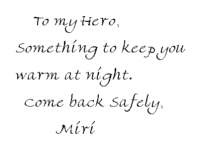 To my Hero,
Something to keep you
warm at night.
Come back Safely,
Miri